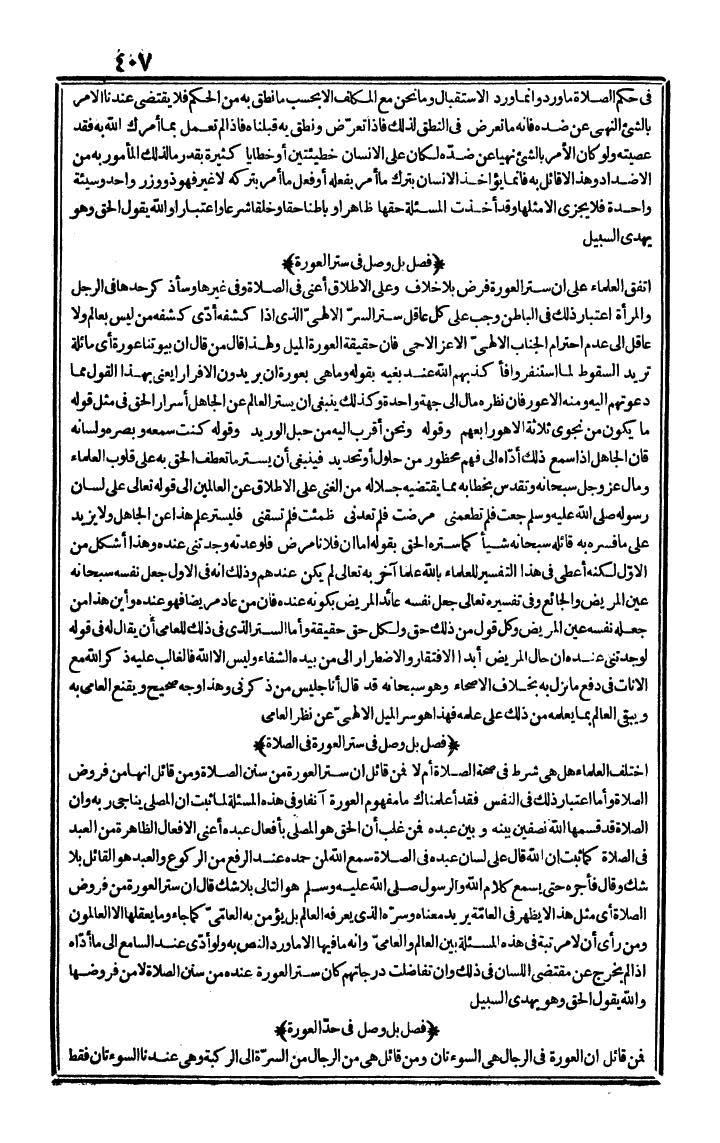 ٤٠٧
فى حكم الصلاة ماورد وانماورد الاستقبال ومانحن مع المكلف الابحسب مانطق به من الحكم فلا يقتضى عندنا الامر
بالشئ النهى عن ضده فانه ماتعرض فى النطق لذلك فاذا تعرض ونطق به قبلناه فاذالم تعمل بما أمرك الله به فقد
عصيته ولو كان الأمر بالشئ نهيا عن ضده لكان على الانسان خطيئتين أو خطايا كثيرة بقدر مالذلك المأموربه من
الاضداد وهذا لاقائل به فانما يؤاخذ الانسان بترك ما أمر بفعله أو فعل ما أمر بتركه لاغير فهو ذو وزر واحد وسيئة
واحدة فلا يجزى الامثلها وقد أخذت المسئلة حقها ظاهرا وباطنا حقا وخلقا شرعا واعتبارا والله يقول الحق وهو
يهدى السبيل
﴿فصل بل وصل فى ستر العورة﴾
اتفق العلماء على ان ستر العورة فرض بلاخلاف وعلى الاطلاق أعنى فى الصلاة وفى غيرها وسأذكر حدها فى الرجل
والمرأة اعتبار ذلك فى الباطن وجب على كل عاقل ستر السرّ الالهىّ الذى اذا كشفه أدّى كشفه من ليس بعالم ولا
عاقل الى عدم احترام الجناب الالهىّ الاعز الاحمى فان حقيقة العورة الميل ولهذا قال من قال ان بيوتنا عورة أى مائلة
تريد السقوط لما استنفروا فأكذبهم الله عند نبيه بقوله وماهى بعورة ان يريدون الافرارا يعنى بهذا القول مما
دعوتهم اليه ومنه الاعور فان نظره مال الى جهة واحدة وكذلك ينبغى ان يستر العالم عن الجاهل أسرار الحق فى مثل قوله
ما يكون من نجوى ثلاثة الاهو رابعهم وقوله ونحن أقرب اليه من حبل الوريد وقوله كنت سمعه وبصره ولسانه
فان الجاهل اذا سمع ذلك أدّاه الى فهم محظور من حلول أو تحديد فينبغى أن يستر ما تعطف الحق به على قلوب العلماء
ومال عز وجل سبحانه وتقدس بخطابه مما يقتضيه جلاله من الغنى على الاطلاق عن العالمين الى قوله تعالى على لسان
رسوله صلى الله عليه وسلم جعت فلم تطعمنى مرضت فلم تعدنى ظمئت فلم تسقنى فليستر علم هذا عن الجاهل ولا يزيد
على مافسره به قائله سبحانه شيأ كما ستره الحق بقوله اما ان فلانا مرض فلو عدته وجدتنى عنده وهذا أشكل من
الاوّل لكنه أعطى فى هذا التفسير للعلماء بالله علما آخر به تعالى لم يكن عندهم وذلك انه فى الاول جعل نفسه سبحانه
عين المريض والجائع وفى تفسيره تعالى جعل نفسه عائد المريض بكونه عنده فان من عاد مريضا فهو عنده وأين هذا من
جعله نفسه عين المريض وكل قول من ذلك حق ولكل حق حقيقة وأما الستر الذى فى ذلك للعامى أن يقال له فى قوله
لوجدتنى عنده ان حال المريض أبدا الافتقار والاضطرار الى من بيده الشفاء وليس الا الله فالغالب عليه ذكر الله مع
الانات فى دفع ما نزل به بخلاف الاصحاء وهو سبحانه قد قال أنا جليس من ذكرنى وهذا وجه صحيح ويقنع العامى به
ويبقى العالم بما يعلمه من ذلك على علمه فهذا هو سر الميل الالهىّ عن نظر العامى
﴿فصل بل وصل فى ستر العورة فى الصلاة﴾
اختلف العلماء هل هى شرط فى صحة الصلاة أم لا فمن قائل ان ستر العورة من سنن الصلاة ومن قائل انها من فروض
الصلاة وأما اعتبار ذلك فى النفس فقد أعلمناك ما مفهوم العورة آنفا وفى هذه المسئلة لما ثبت ان المصلى يناجى ربه وان
الصلاة قد قسمها الله نصفين بينه وبين عبده فمن غلب أن الحق هو المصلى بأفعال عبده أعنى الافعال الظاهرة من العبد
فى الصلاة كما ثبت ان الله قال على لسان عبده فى الصلاة سمع الله لمن حمده عند الرفع من الركوع والعبد هو القائل بلا
شك وقال فأجره حتى يسمع كلام الله والرسول صلى الله عليه وسلم هو التالى بلاشك قال ان ستر العورة من فروض
الصلاة أى مثل هذا لايظهر فى العامّة يريد معناه وسرّه الذى يعرفه العالم بل يؤمن به العامّىّ كما جاء وما يعقلها الا العالمون
ومن رأى أن لامرتبة فى هذه المسئلة بين العالم والعامىّ وانه مافيها الا ماورد النص به ولو أدّى عند السامع الى ماأدّاه
اذا لم يخرج عن مقتضى اللسان فى ذلك وان تفاضلت درجاتهم كان ستر العورة عنده من سنن الصلاة لامن فروضها
والله يقول الحق وهو يهدى السبيل
﴿فصل بل وصل فى حدّ العورة﴾
فمن قائل ان العورة فى الرجال هى السوءتان ومن قائل هى من الرجال من السرّة الى الركبة وهى عندنا السوءتان فقط